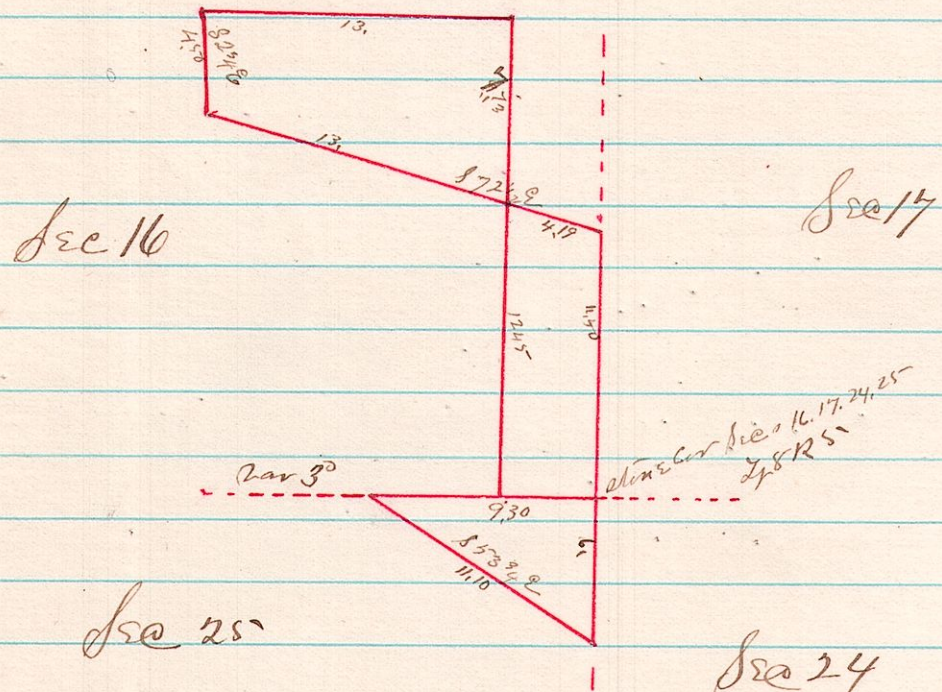 13.
4.54
7.73
13,
S 72 1/2 E
4.19
Sec 16
Sec 17
12.45
11.40
Var 3°
Stone Cor Secs 16. 17. 24. 25
Tp 8 R 5
9.30
S 53 3/4 E
11.10
6,
Sec 25
Sec 24